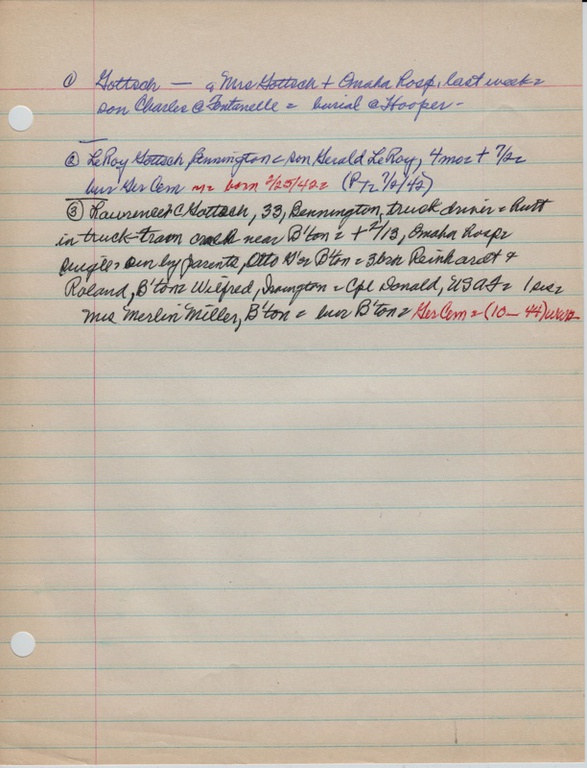 ① Gottsch — a Mrs Gottsch + Omaha Hosp, last week =
son Charles @ Fontanelle = burial @ Hooper -
② LeRoy Gottsch Bennington = son Gerald LeRoy, 4 mos = + 7/2 =
bur Ger Cem = born 2/25/42 = (P 7/2/42)
③ Lawrence C Gottsch, 33, Bennington, truck driver = hurt
in truck-train crash near B'ton = + 2/13, Omaha Hosp =
single = sur by parents, Otto B'ton = 3 bro Reinhardt &
Roland, B'ton = Wilfred, Irvington = Cpl Donald, USAF = 1 sis =
Mrs Merlin Miller, B'ton = bur B'ton = Ger Cem = (10 — 44)